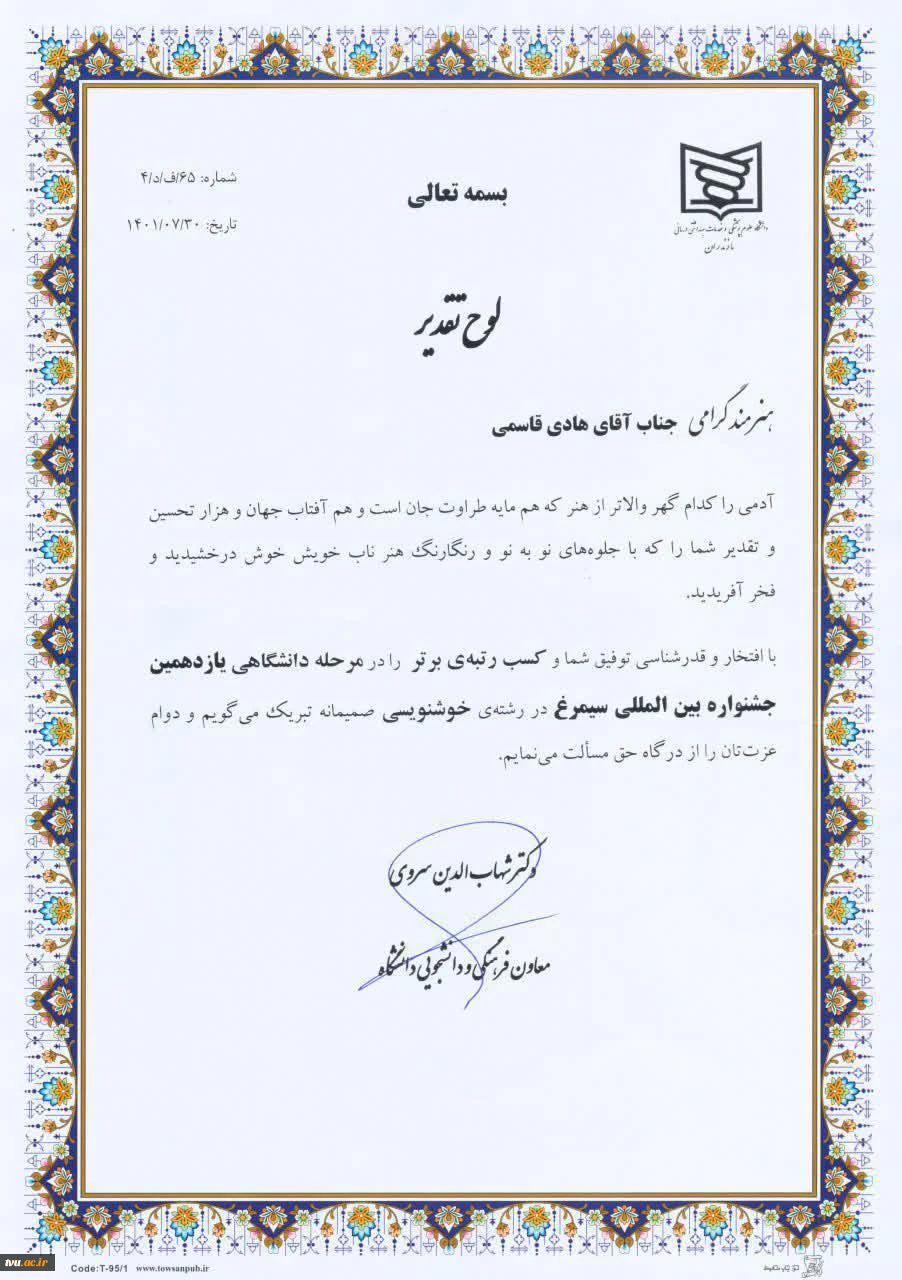 بسمه تعالی
شماره: ۶۵/ف/د/۴
تاریخ: ۱۴۰۱/۰۷/۳۰
دانشگاه علوم پزشکی و خدمات بهداشتی درمانی
مازندران
لوح تقدیر
هنرمند گرامی جناب آقای هادی قاسمی
آدمی را کدام گهر والاتر از هنر که هم مایه طراوت جان است و هم آفتاب جهان و هزار تحسین
و تقدیر شما را که با جلوه‌های نو به نو و رنگارنگ هنر ناب خویش خوش درخشیدید و
فخر آفریدید.
با افتخار و قدرشناسی توفیق شما و کسب رتبه‌ی برتر را در مرحله دانشگاهی یازدهمین
جشنواره بین المللی سیمرغ در رشته‌ی خوشنویسی صمیمانه تبریک می‌گویم و دوام
عزت‌تان را از درگاه حق مسألت می‌نمایم.
دکتر شهاب الدین سروی
معاون فرهنگی و دانشجویی دانشگاه
tvu.ac.ir
Code:T-95/1 www.towsanpub.ir